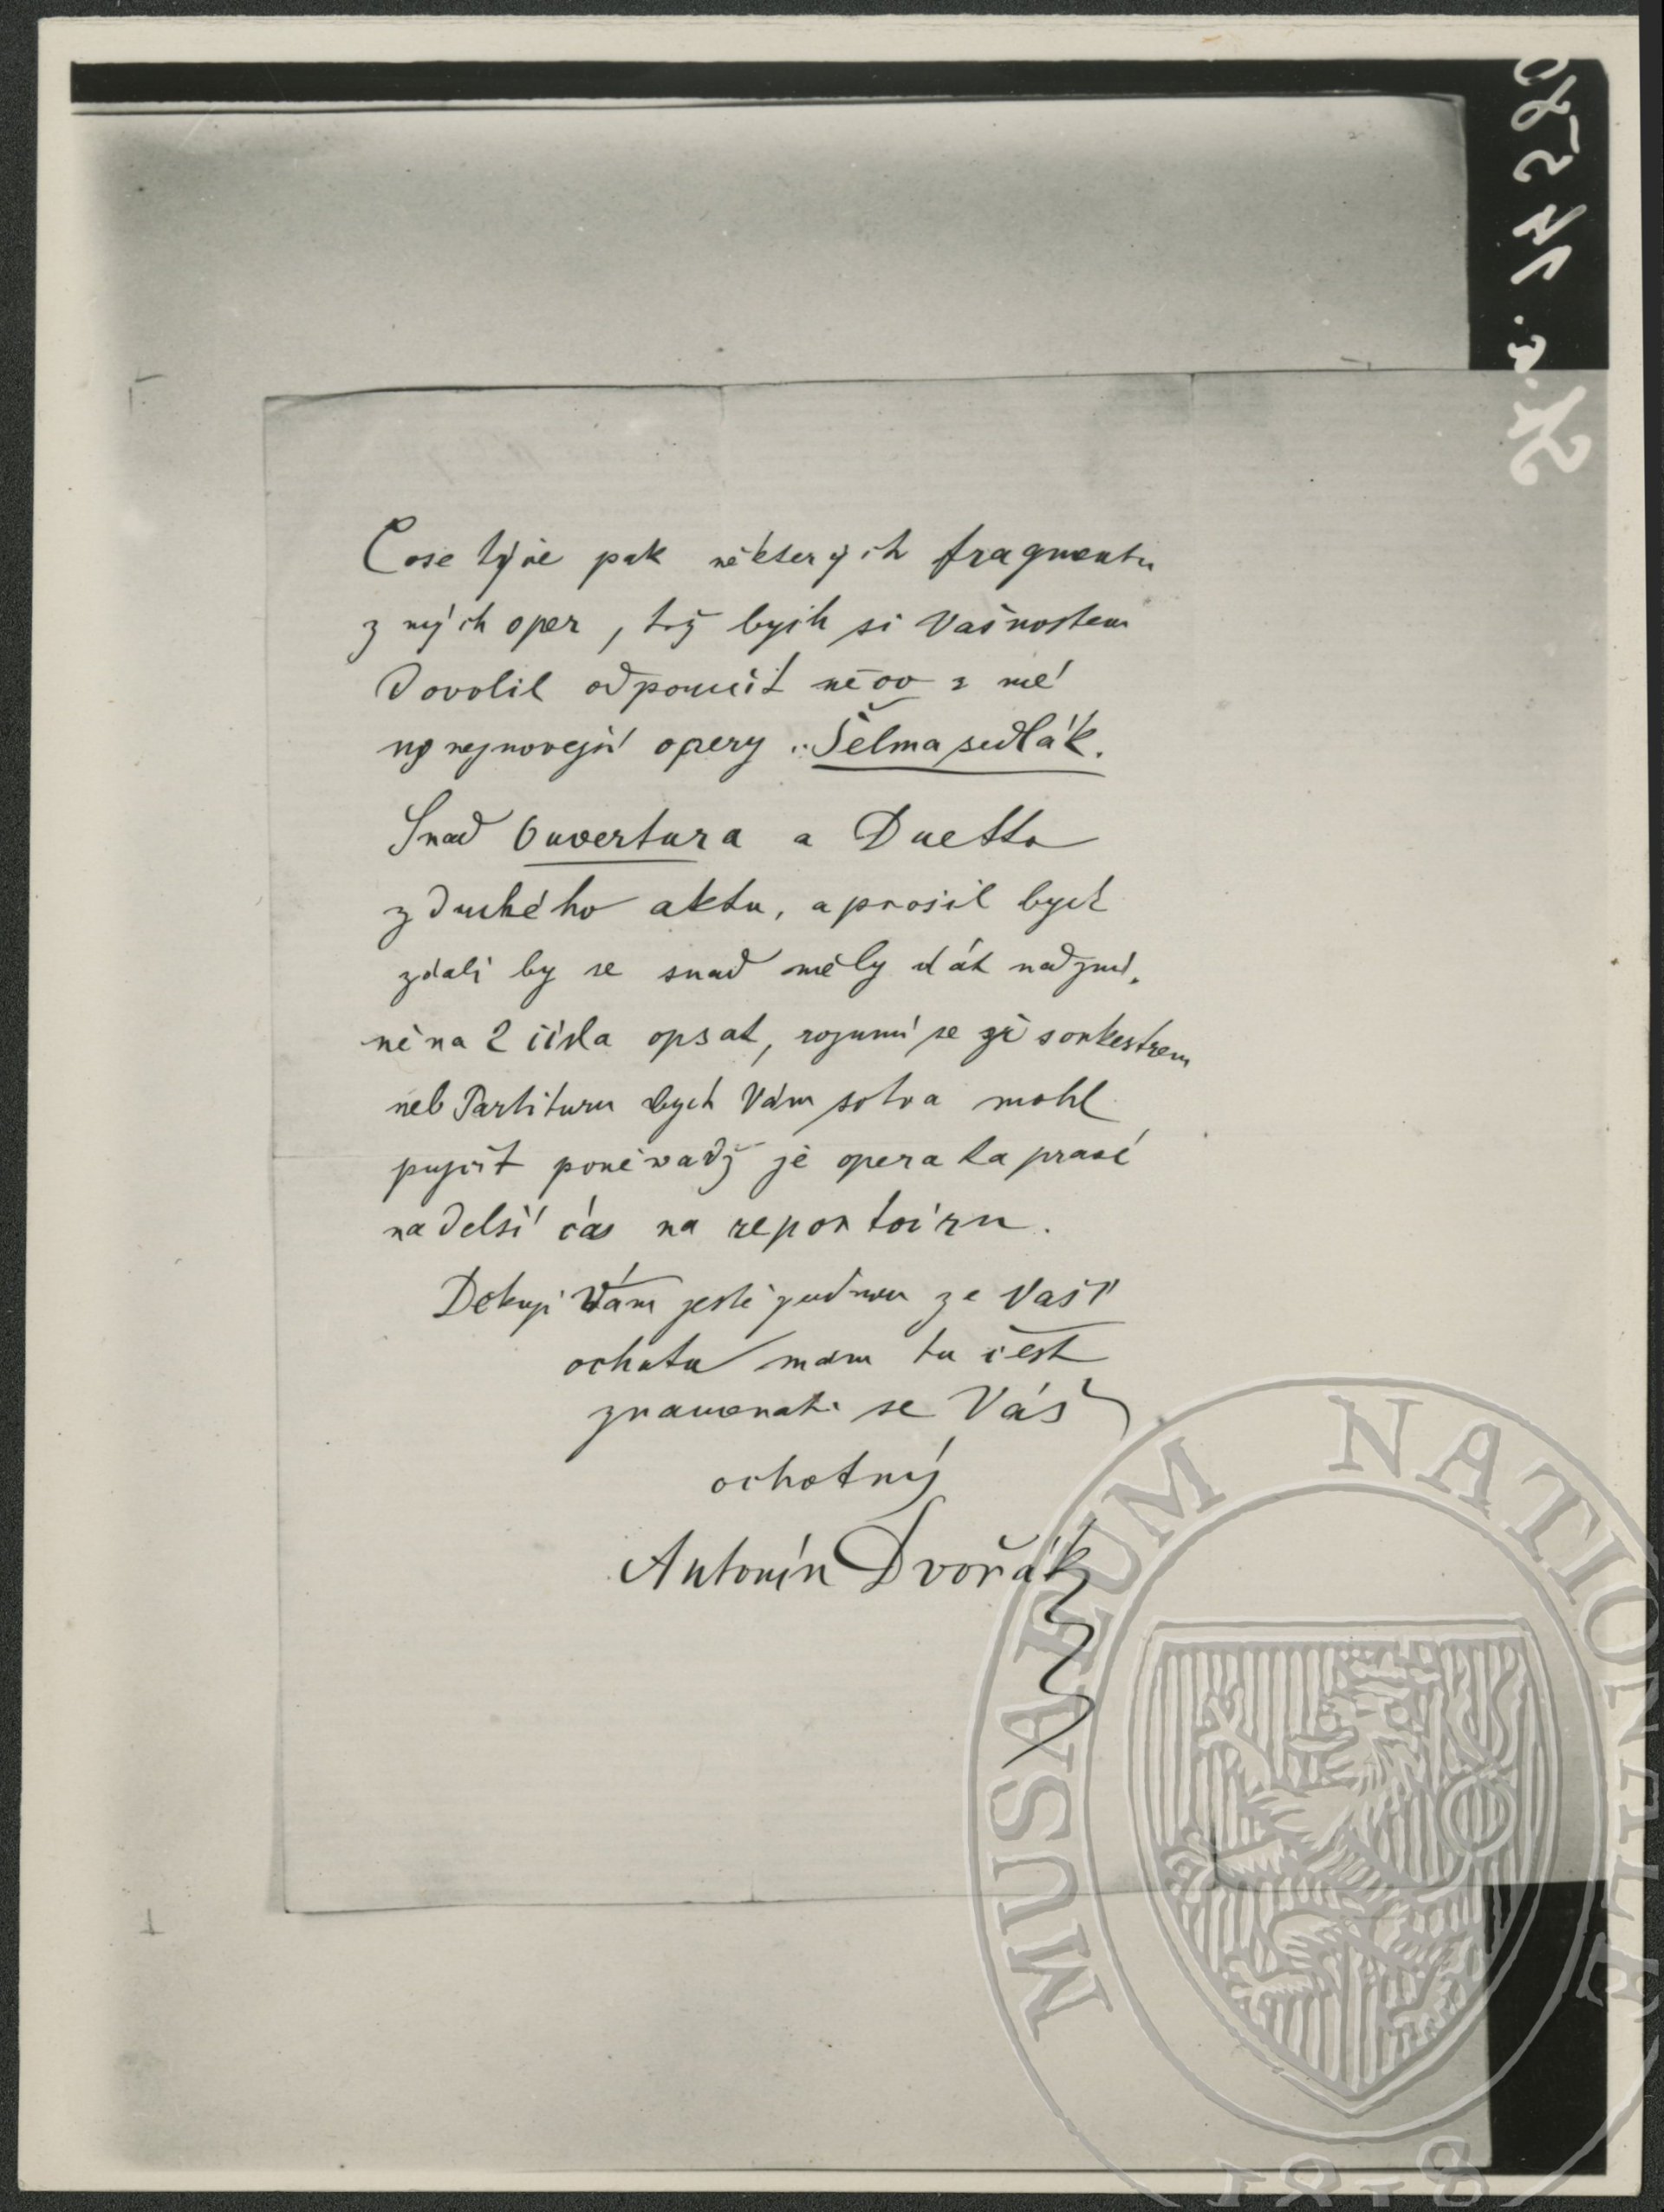 Co se týče pak některých fragmentu
z mých oper, tož bych si Vašnostem
dovolil odporučit něco z mé
nejnovejší opery „Šelma sedlák.
Snad Ouvertura a Duetto
z druhého aktu, a prosil bych
zdali by se snad měly dát nadzmí-
něna 2 čísla opsat, rozumí se že s orkestrem
neb Partituru bych Vám sotva mohl
pujčit poněvadž je opera ta pravé
na delší čas na repertoiru.
Dekuji Vám ještě jednou za Vaší
ochotu mám tu čest
znamenati se Váš
ochotný
Antonín Dvořák
MUSAEUM NATIONALE
1818